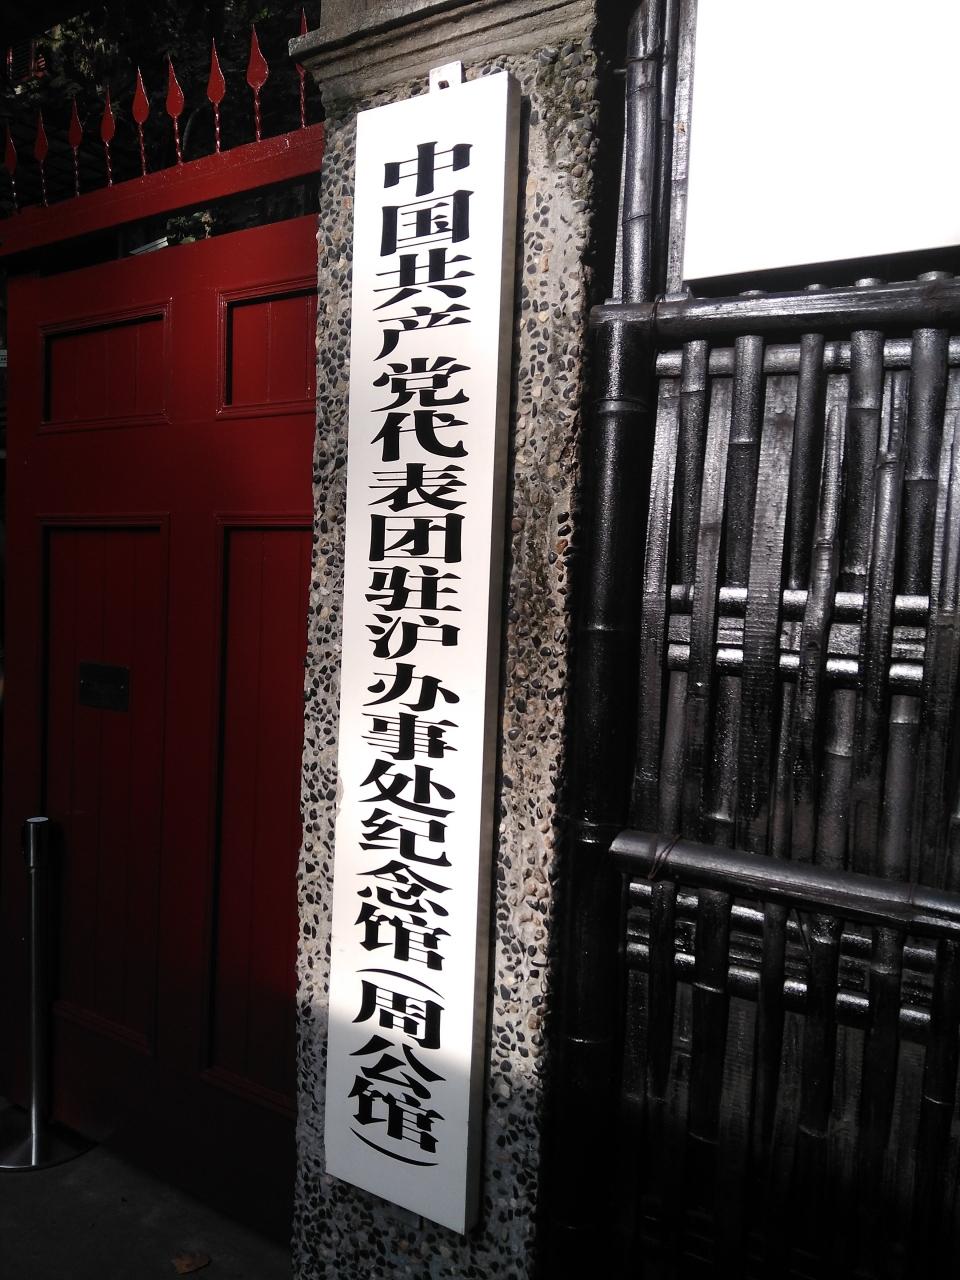 中国共产党代表团驻沪办事处纪念馆(周公馆)